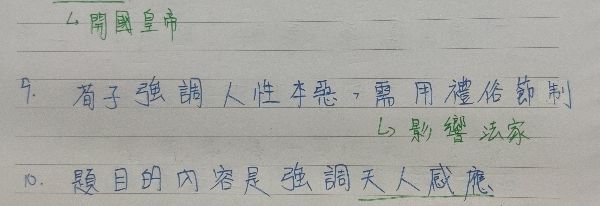 ↳開國皇帝
9. 荀子強調人性本惡，需用禮俗節制
↳影響法家
10. 題目的內容是強調天人感應